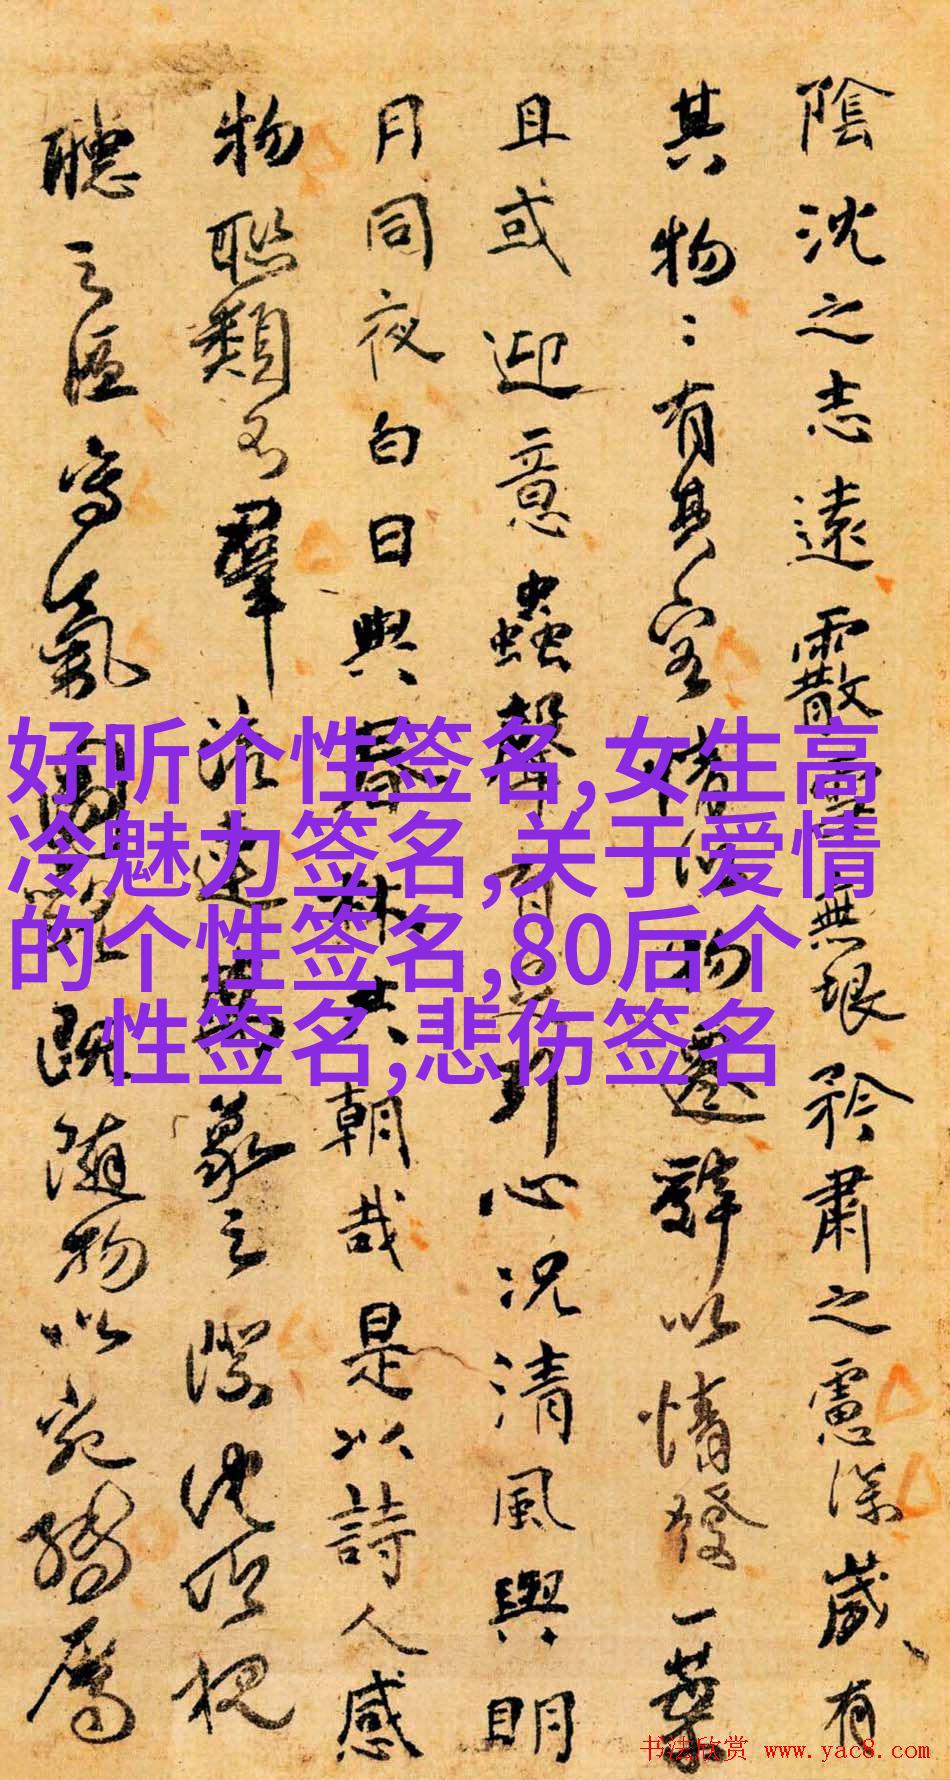 陰沈之志遠霰雪無垠矜肅之慮深歲有
其物〻有其容情以物遷辭以情發一葉
且或迎意蟲聲有足引心況清風與明
月同夜白日與春林共朝哉是以詩人感
物聯類不窮流連萬象之際沈吟視
聽之區寫氣圖貌既隨物以宛轉屬
好听个性签名,女生高
冷魅力签名,关于爱情
的个性签名,80后个
性签名,悲伤签名
书法欣赏 www.yac8.com